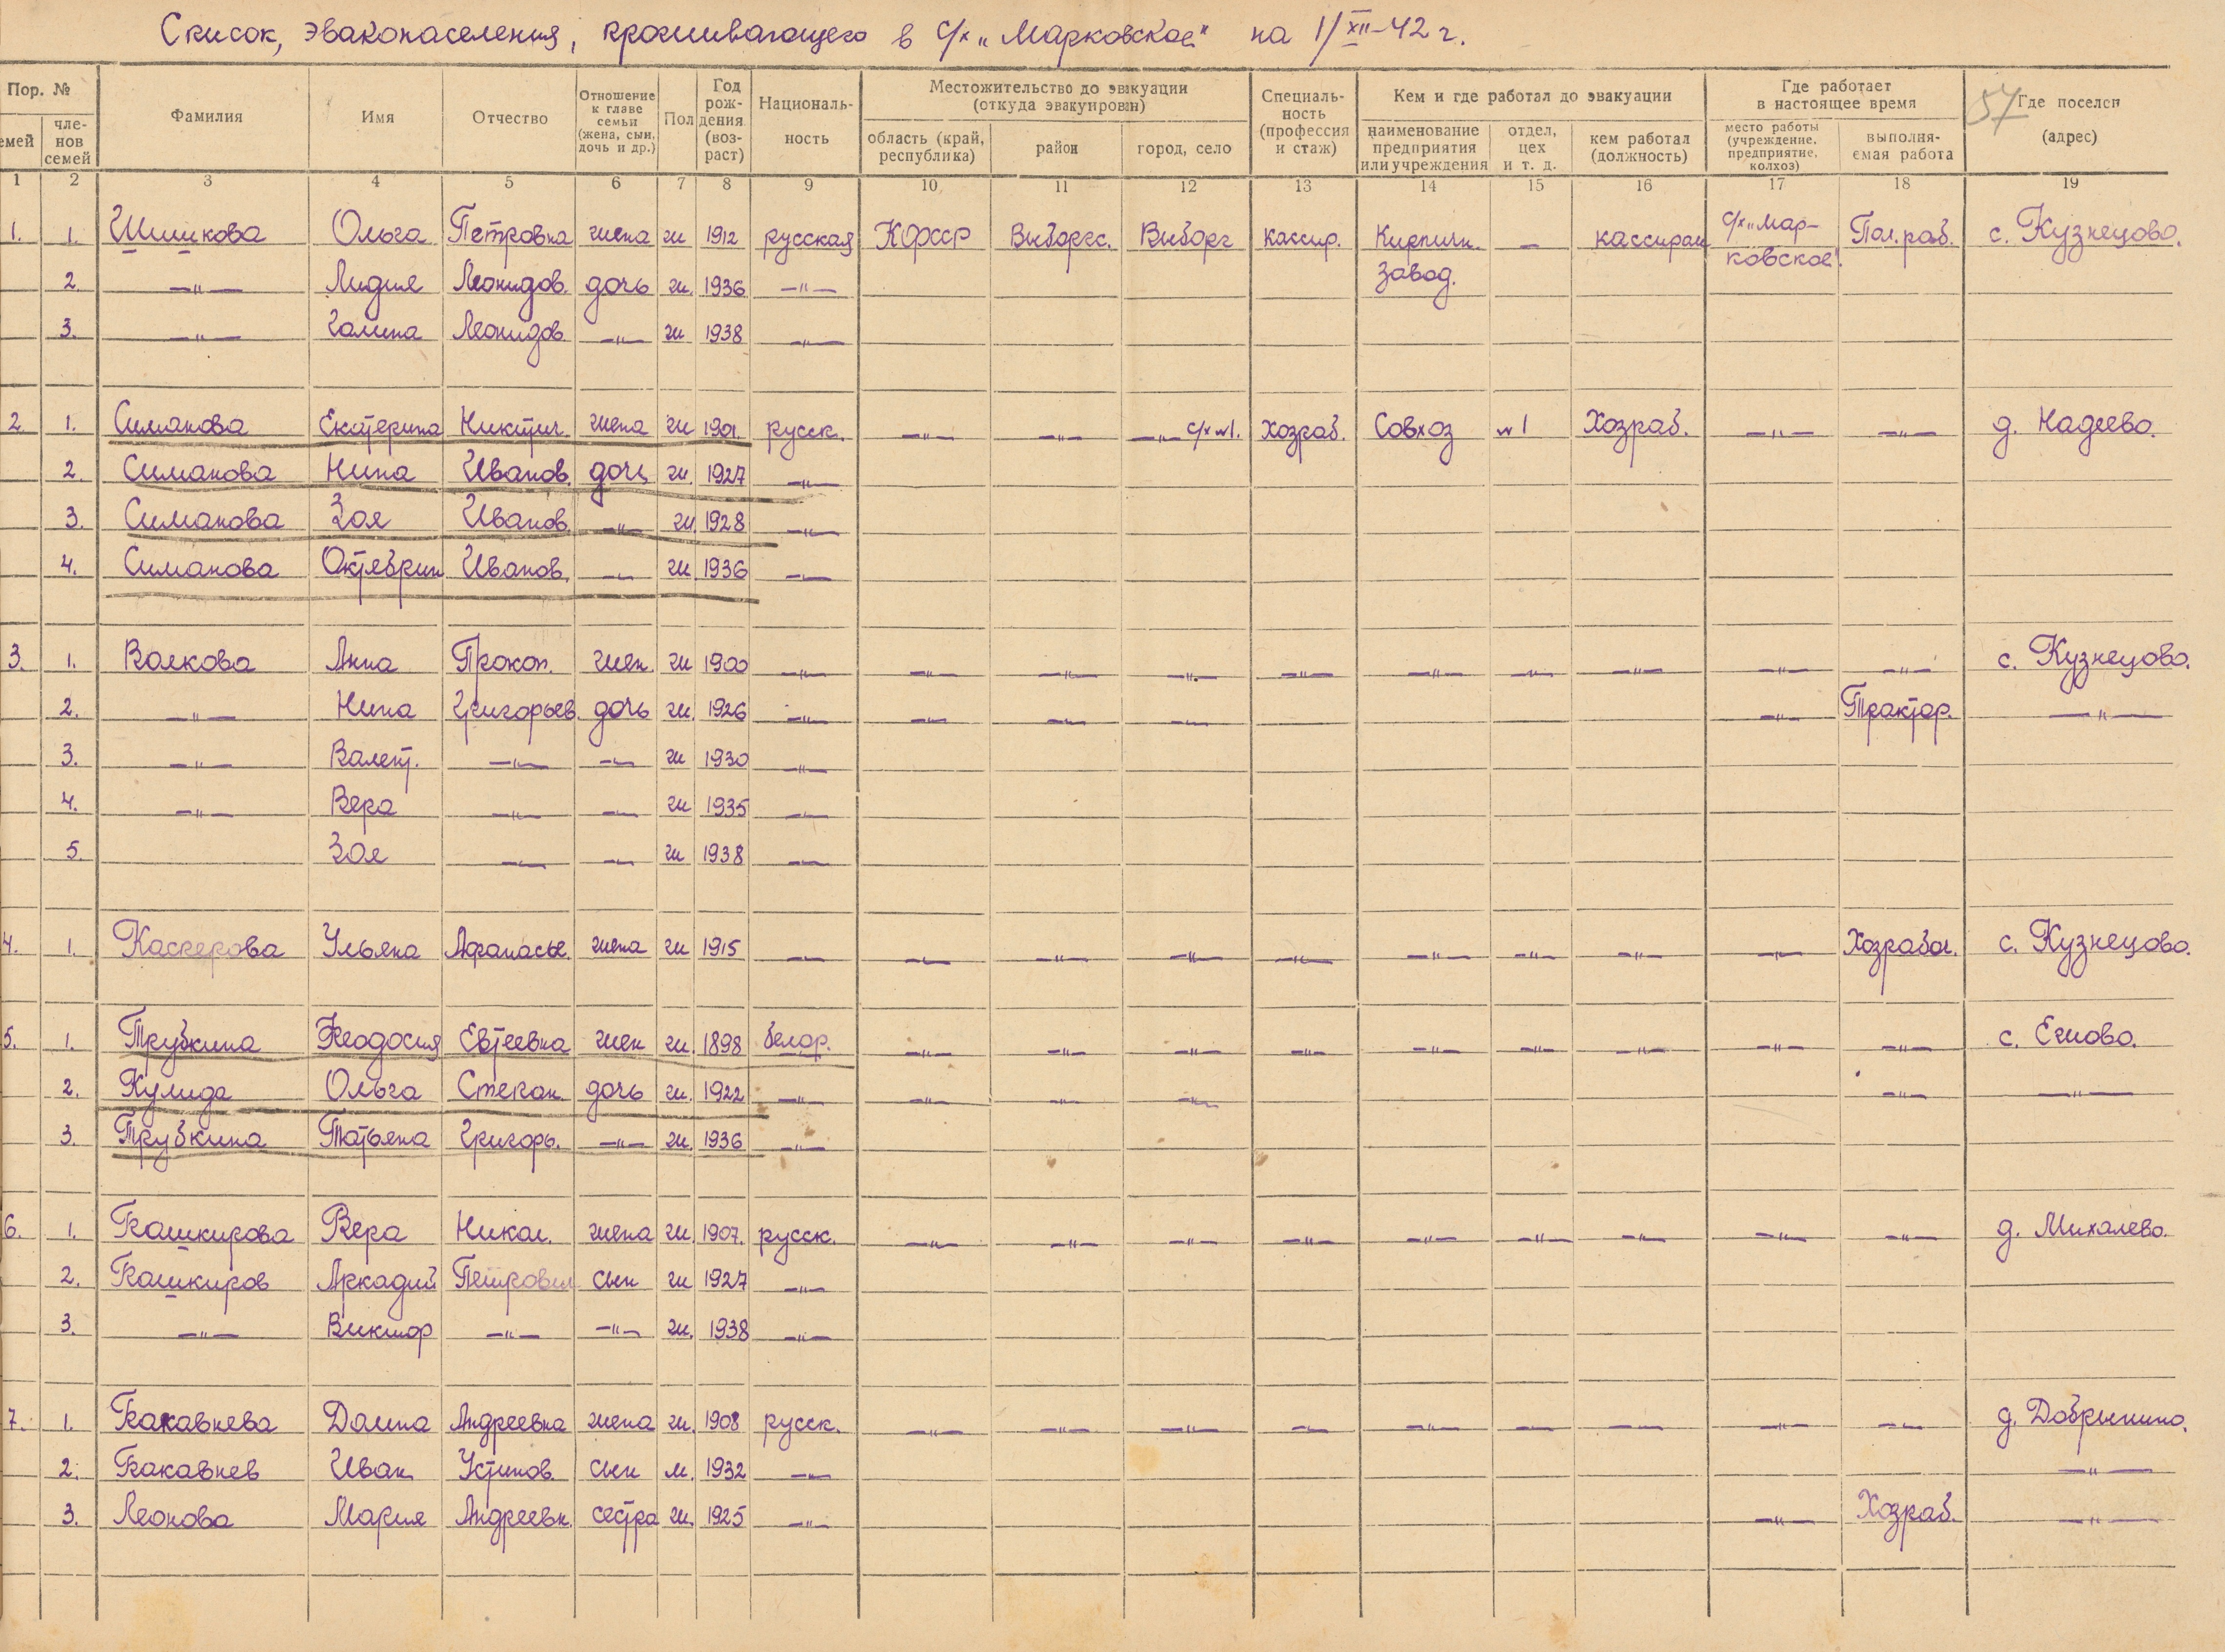 Список, эваконаселения, проживающего в с/х „Марковское" на 1/XII-42 г.
57
Пор. № Фамилия Имя Отчество Отношение к главе семьи (жена, сын, дочь и др.) Пол Год рождения (возраст) Националь-ность Местожительство до эвакуации (откуда эвакуирован) Специаль-ность (профессия и стаж) Кем и где работал до эвакуации Где работает в настоящее время Где поселен (адрес)
емей чле-нов семей область (край, республика) район город, село наименование предприятия или учреждения отдел, цех и т. д. кем работал (должность) место работы (учреждение, предприятие, колхоз) выполня-емая работа
1 2 3 4 5 6 7 8 9 10 11 12 13 14 15 16 17 18 19
1. 1. Шишкова Ольга Петровна жена ж 1912 русская КФССР Выборгс. Выборг кассир. Кирпичн. завод. — кассиром с/х „Мар-ковское". Пол. раб. с. Кузнецово.
2. —"— Лидия Леонидов. дочь ж. 1936 —"—
3. —"— Галина Леонидов. —"— ж 1938 —"—
2. 1. Симакова Екатерина Никтич. жена ж 1901. русск. —"— —"— —"— с/х №1. Хозраб. Совхоз №1 Хозраб. —"— —"— д. Надеево.
2. Симакова Нина Иванов. дочь ж. 1927 —"—
3. Симакова Зоя Иванов. —"— ж. 1928 —"—
4. Симакова Октябрин Иванов. —"— ж 1936 —"—
3. 1. Волкова Анна Прокоп. жен. ж 1900 —"— —"— —"— —"— —"— —"— —"— —"— —"— —"— с. Кузнецово.
2. —"— Нина Григорьев. дочь ж. 1926 —"— —"— —"— —"— —"— Трактор. —"—
3. —"— Валент. —"— —"— ж 1930 —"—
4. —"— Вера —"— —"— ж 1935 —"—
5. Зоя —"— —"— ж 1938 —"—
4. 1. Ульяна Афанасье. жена ж 1915 —"— —"— —"— —"— —"— —"— —"— —"— —"— Хозрабоч. с. Кузнецово.
5. 1. Трубкина Феодосия Евтеевна жен ж. 1898 белор. —"— —"— —"— —"— —"— —"— —"— —"— —"— с. Ежово.
2. Кулида Ольга Степан. дочь ж. 1922 —"— —"— —"— —"— —"— —"—
3. Трубкина Татьяна Григорь. —"— ж. 1936 —"—
6. 1. Башкирова Вера Никол. жена ж. 1907. русск. —"— —"— —"— —"— —"— —"— —"— —"— —"— д. Михалево.
2. Башкиров Аркадий Петрович сын ж 1927 —"—
3. —"— Виктор —"— —"— ж. 1938 —"—
7. 1. Бакавнева Домна Андреевна жена ж. 1908 русск. —"— —"— —"— —"— —"— —"— —"— —"— —"— д. Добрынино.
2. Бакавнев Иван Устинов. сын м. 1932 —"— —"—
3. Леонова Мария Андреевн. сестра ж. 1925 —"— —"— Хозраб. —"—